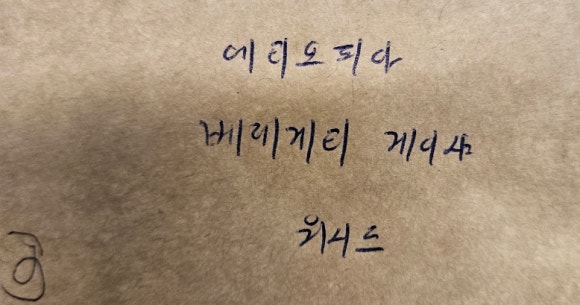 에티오피아
베리게티 게이샤
워시드